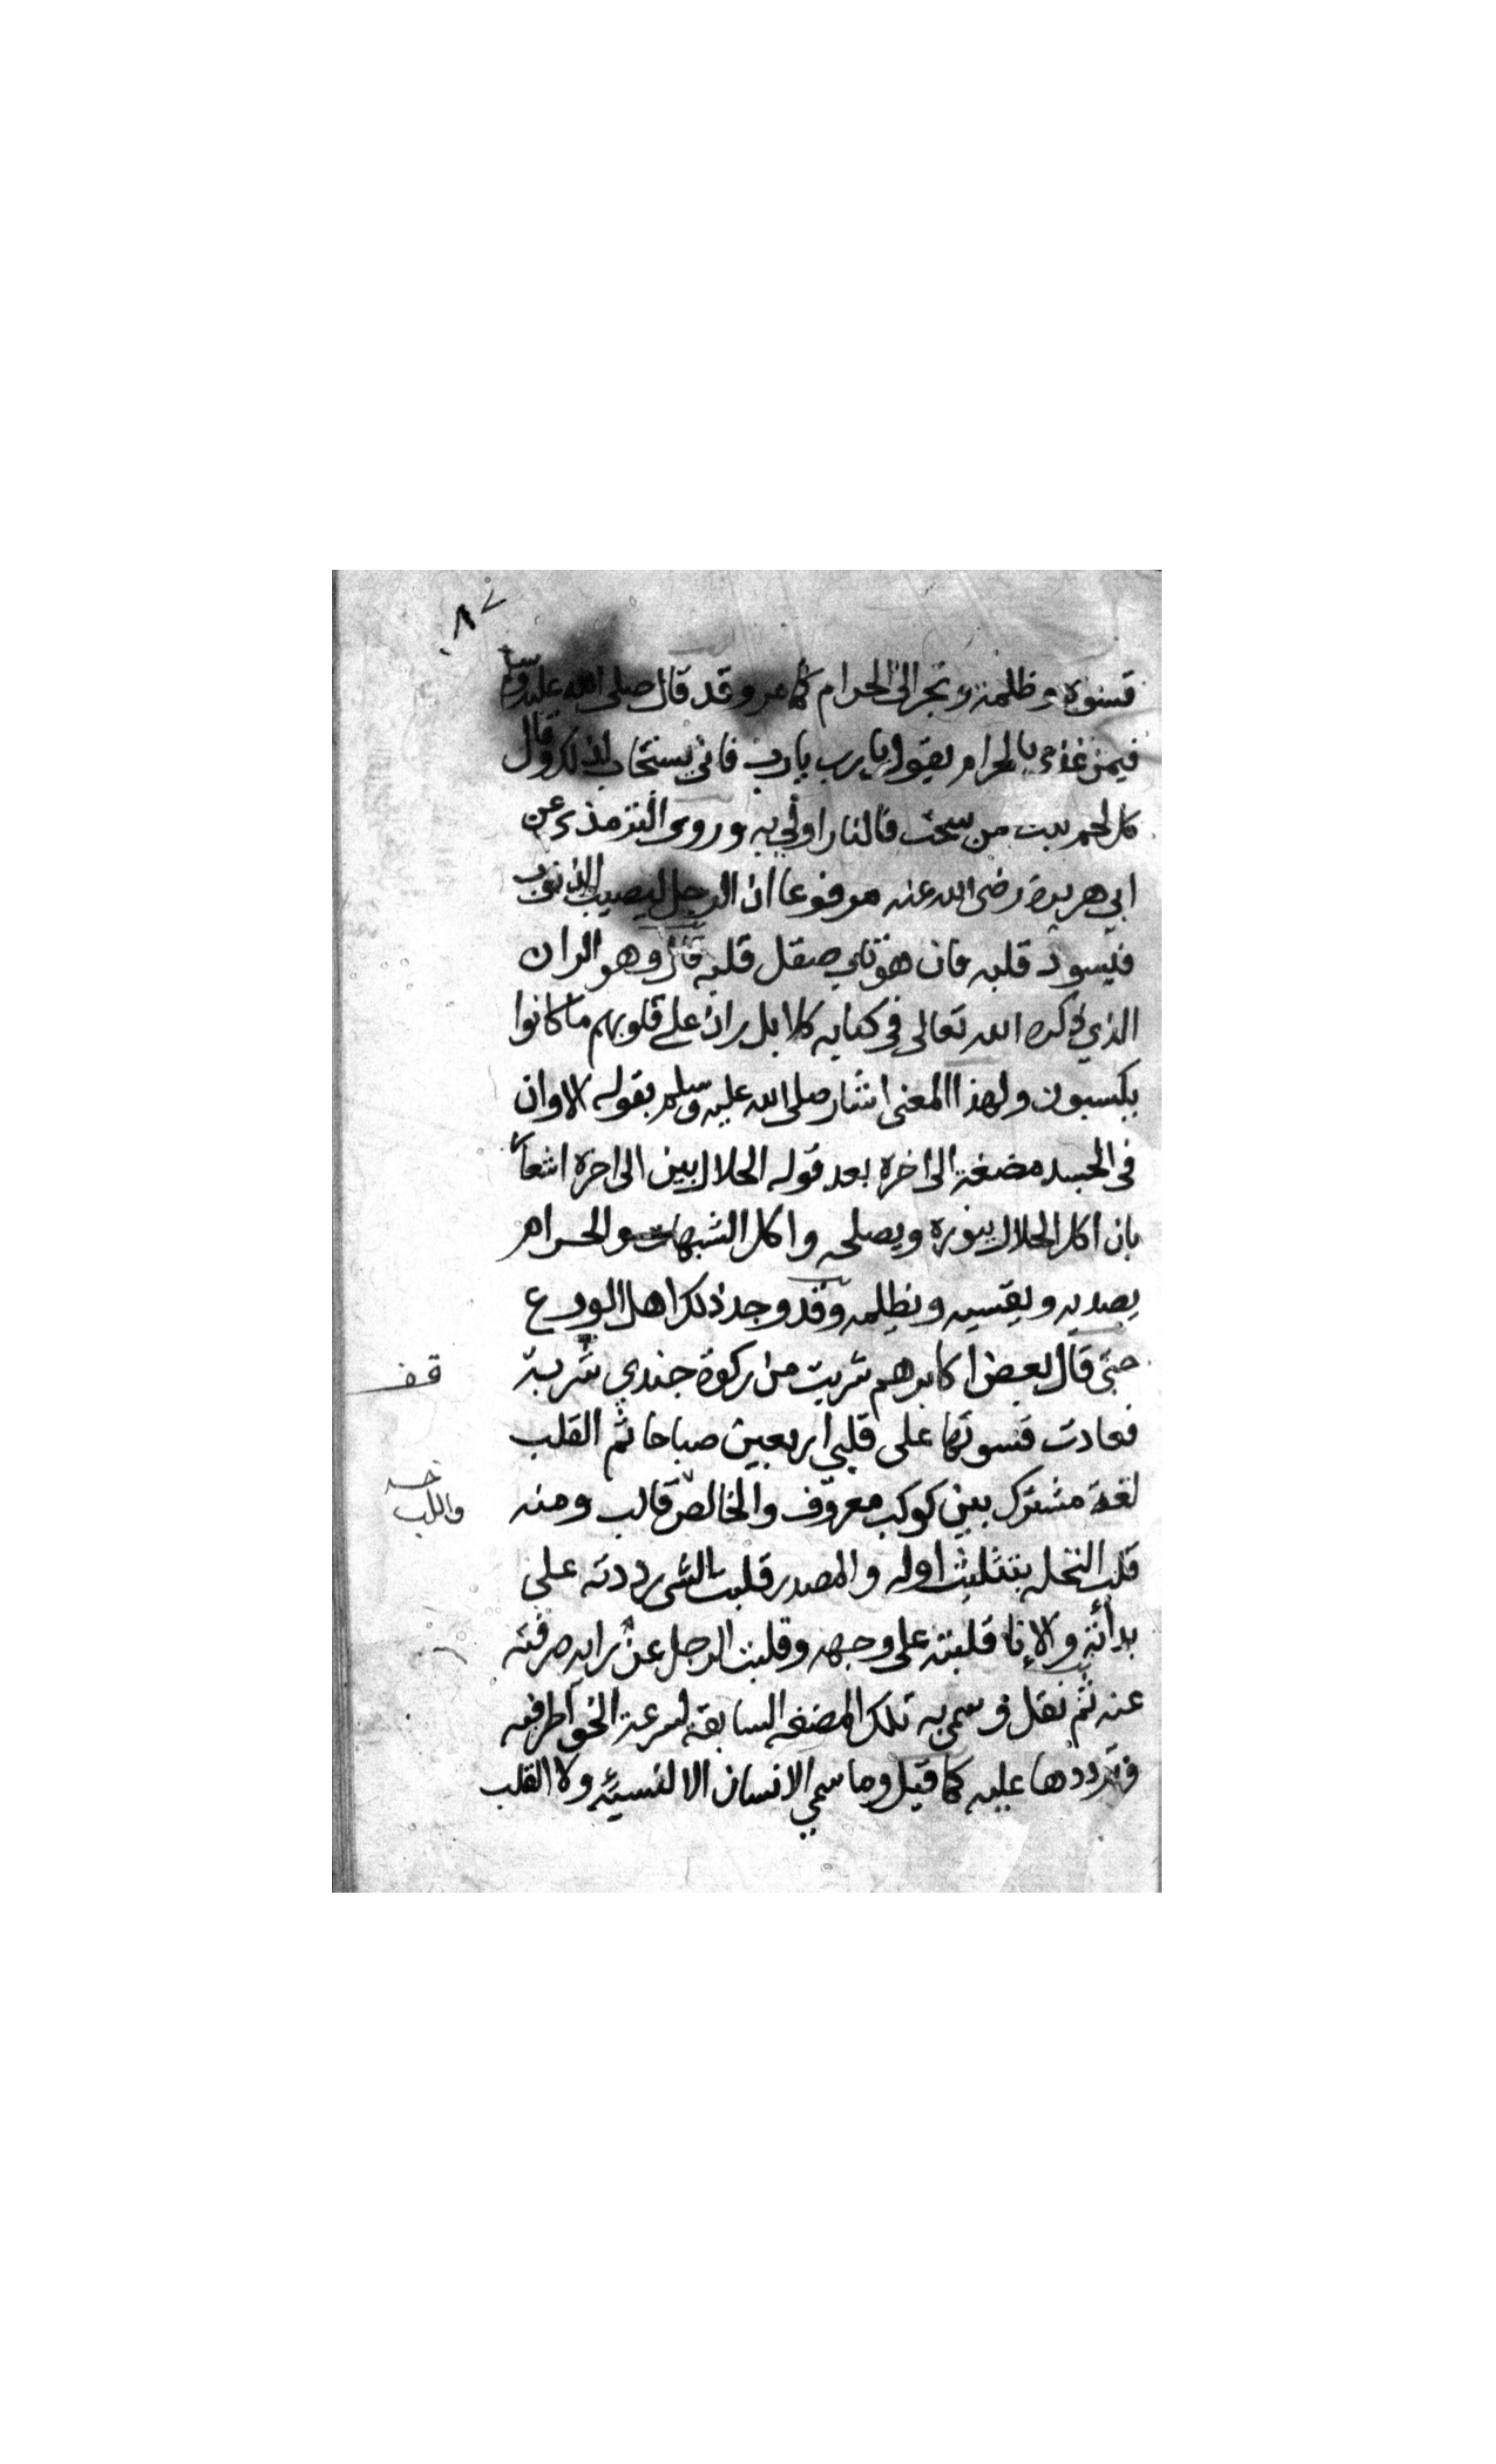 ٨٧
قسوة وظلمة وتجر الى الحرام كما مر وقد قال صلى الله عليه وسلم
فيمن غذي بالحرام يقول يا رب يا رب فاني يستجاب لذلك وقال
كل لحم نبت من سحت فالنار اولي به وروى الترمذي عن
ابي هريرة رضى الله عنه مرفوعا ان الرجل ليصيب الذنوب
فيسود قلبه فان هو تاب صقل قلبه قال وهو الران
الذي ذكره الله تعالى في كتابه كلا بل ران على قلوبهم ما كانوا
يكسبون ولهذا المعنى اشار صلى الله عليه وسلم بقوله الا وان
فى الجسد مضغة الى اخره بعد قوله الحلال بين الى اخره اشعارا
بان اكل الحلال ينوره ويصلحه واكل الشبهات والحرام
يصديه ويقسيه ويظلمه وقد وجد ذلك اهل الورع
حتى قال بعض اكابرهم شربت من ركوة جندي شربة
قف
فعادت قسوتها على قلبي اربعين صباحا ثم القلب
لغة مشترك بين كوكب معروف والخالص قالب ومنه
واللب
قلب النخله بتثليث اوله والمصدر قلبت الشى رددته على
بدأته والانا قلبته على وجهه وقلبت الرجل عن رايه صرفته
عنه ثم نقل وسمى به تلك المضغه السابقة لسرعة الخواطر فيه
وترددها عليه كما قيل وما سمي الانسان الا لنسيه ولا القلب